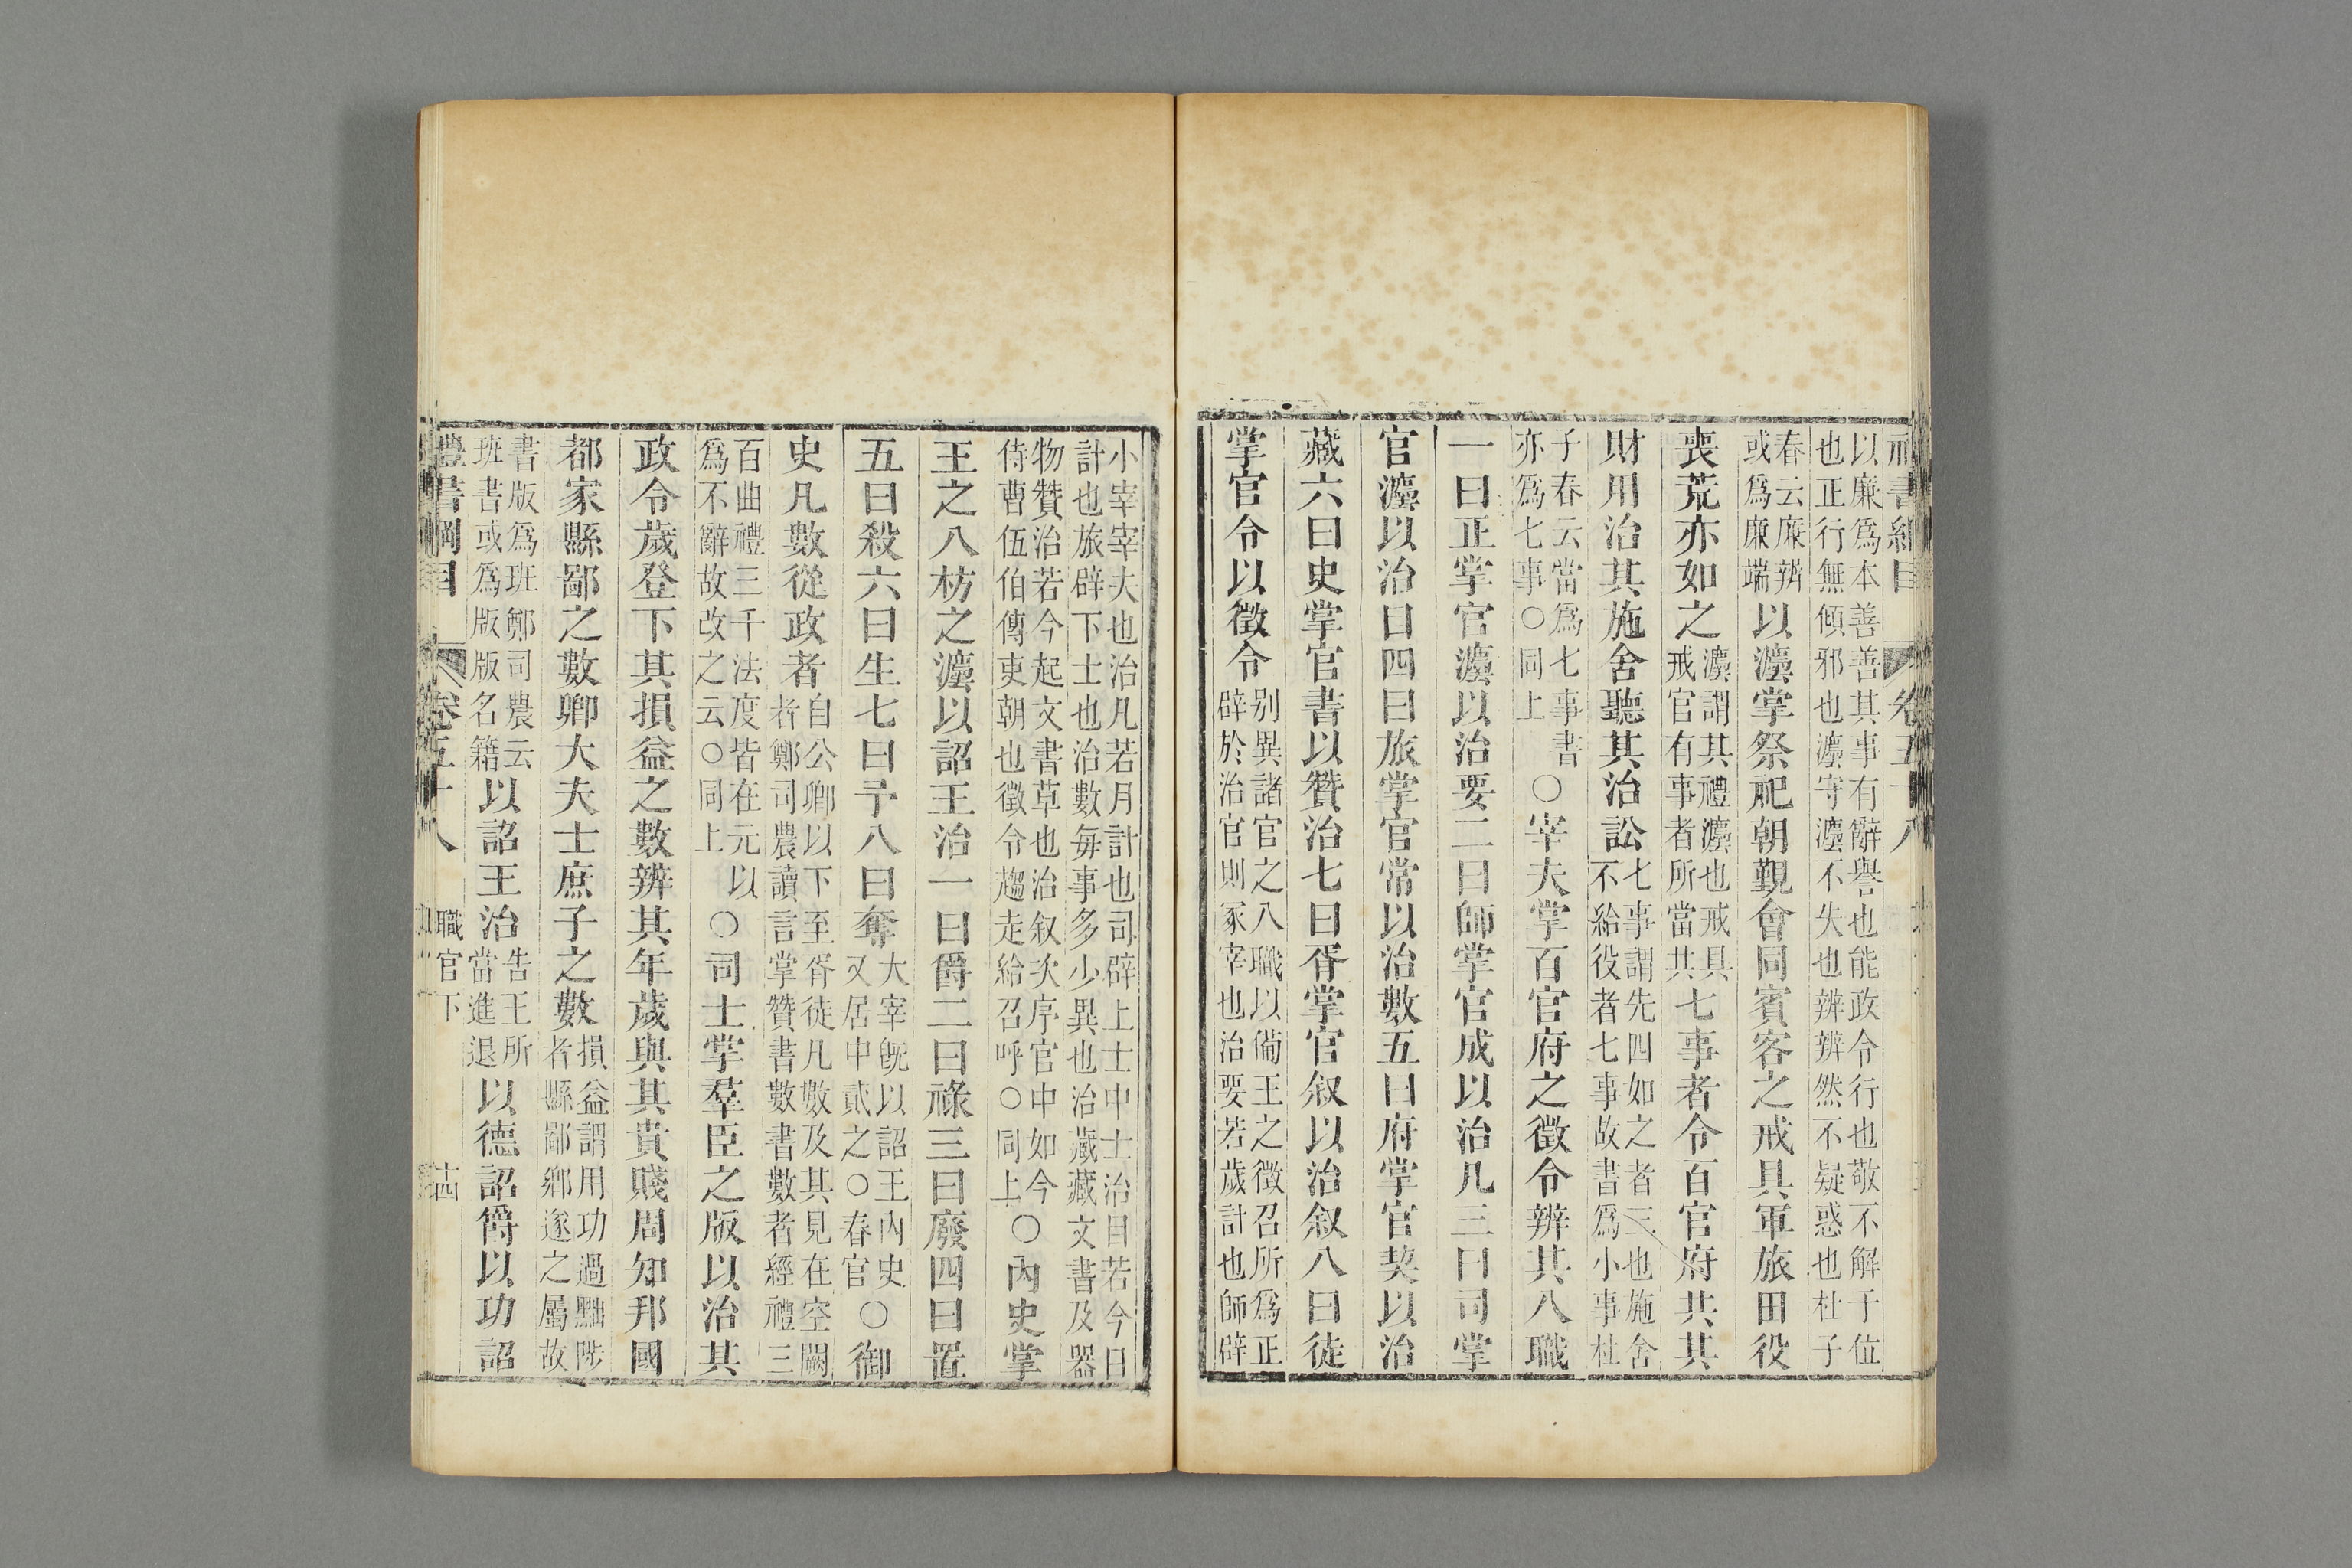 禮書綱目 卷五十八
以廉爲本善善其事有辭譽也能政令行也敬不解于位
也正行無傾邪也灋守灋不失也辨辨然不疑惑也杜子
春云廉辨
或爲廉端
以灋掌祭祀朝覲會同賓客之戒具軍旅田役
喪荒亦如之
灋謂其禮灋也戒具
戒官有事者所當共
七事者令百官府共其
財用治其施舍聽其治訟
七事謂先四如之者三也施舍
不給役者七事故書爲小事杜
子春云當爲七事書
亦爲七事○同上
○宰夫掌百官府之徵令辨其八職
一曰正掌官灋以治要二曰師掌官成以治凡三曰司掌
官灋以治目四曰旅掌官常以治數五曰府掌官契以治
藏六曰史掌官書以贊治七曰胥掌官叙以治叙八曰徒
掌官令以徵令
别異諸官之八職以備王之徵召所爲正
辟於治官則冢宰也治要若歲計也師辟
小宰宰夫也治凡若月計也司辟上士中士治目若今日
計也旅辟下士也治數每事多少異也治藏藏文書及器
物贊治若今起文書草也治叙次序官中如今
侍曹伍伯傳吏朝也徵令趨走給召呼○同上
○內史掌
王之八枋之灋以詔王治一曰爵二曰祿三曰廢四曰置
五曰殺六曰生七曰予八曰奪
大宰旣以詔王內史
又居中貳之○春官
○御
史凡數從政者
自公卿以下至胥徒凡數及其見在空闕
者鄭司農讀言掌贊書數書數者經禮三
百曲禮三千法度皆在元以
爲不辭故改之云○同上
○司士掌羣臣之版以治其
政令歲登下其損益之數辨其年歲與其貴賤周知邦國
都家縣鄙之數卿大夫士庶子之數
損益謂用功過黜陟
者縣鄙鄉遂之屬故
書版爲班鄭司農云
班書或爲版版名籍
以詔王治
告王所
當進退
以德詔爵以功詔
禮書綱目 卷五十八 職官下 十四